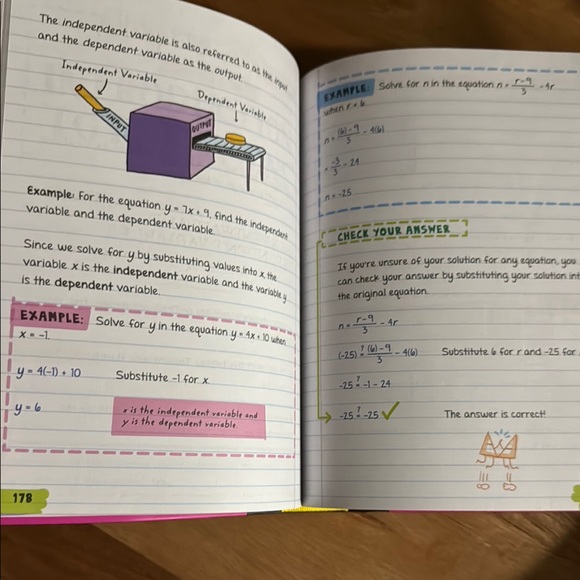 The independent variable is also referred to as the input
and the dependent variable as the output.
Independent Variable
Dependent Variable
INPUT
OUTPUT
Example: For the equation y = 7x + 9, find the independent
variable and the dependent variable.
Since we solve for y by substituting values into x, the
variable x is the independent variable and the variable y
is the dependent variable.
EXAMPLE: Solve for y in the equation y = 4x + 10 when
x = -1.
y = 4(-1) + 10 Substitute -1 for x.
y = 6
x is the independent variable and
y is the dependent variable.
178
EXAMPLE: Solve for n in the equation n = (r-9)/3 - 4r
when r = 6
n = ((6)-9)/3 - 4(6)
= -3/3 - 24
n = -25
CHECK YOUR ANSWER
If you're unsure of your solution for any equation, you
can check your answer by substituting your solution
the original equation.
n = (r-9)/3 - 4r
(-25) ≟ ((6)-9)/3 - 4(6) Substitute 6 for r and -25 for
-25 ≟ -1 - 24
-25 ≟ -25 ✓ The answer is correct!